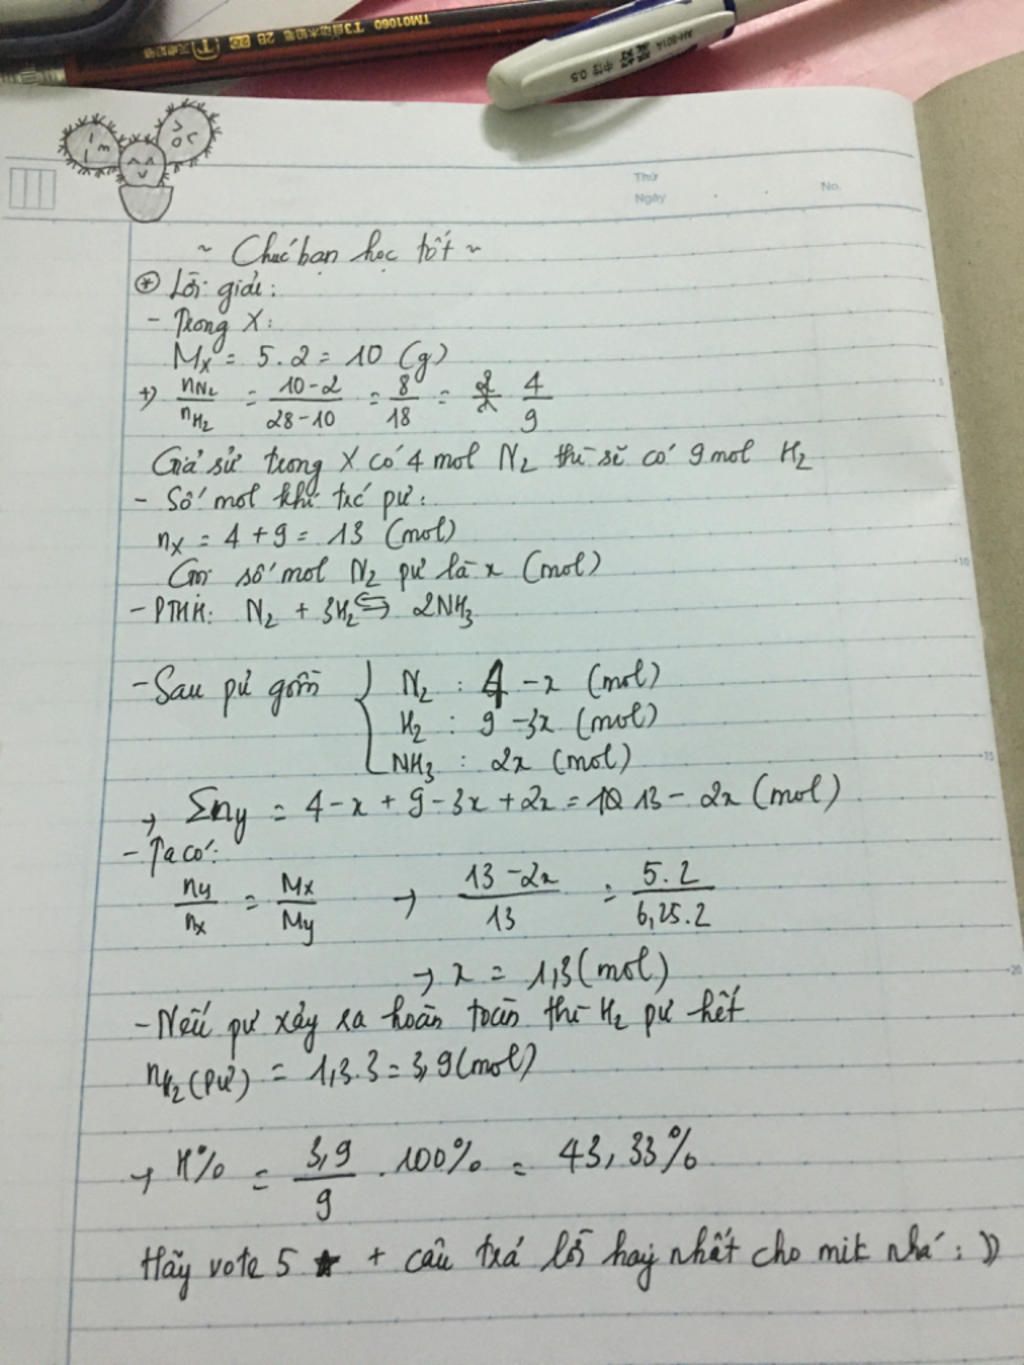 TM01060 T3自动木铅笔 2B
中性 0.5
Thứ
Ngày
No.
~ Chúc bạn học tốt ~
* Lời giải:
- Trong X:
Mx = 5.2 = 10 (g)
+) nN2/nH2 = 10-2/28-10 = 8/18 = 4/9
Giả sử trong X có 4 mol N2 thì sẽ có 9 mol H2
- Số mol khí trc pư:
nx = 4 + 9 = 13 (mol)
Gọi số mol N2 pư là x (mol)
- PTHH: N2 + 3H2 ⇆ 2NH3
- Sau pư gồm { N2 : 4 - x (mol)
H2 : 9 - 3x (mol)
NH3 : 2x (mol)
→ Σny = 4 - x + 9 - 3x + 2x = 13 - 2x (mol)
- Ta có:
ny/nx = Mx/My → 13-2x/13 = 5.2/6,25.2
→ x = 1,3 (mol)
- Nếu pư xảy ra hoàn toàn thì H2 pư hết
nH2 (pư) = 1,3.3 = 3,9 (mol)
→ H% = 3,9/9 . 100% = 43,33%
Hãy vote 5 ★ + câu trả lời hay nhất cho mik nhá :))